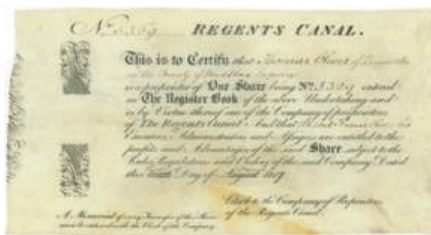 No. 5359 REGENTS CANAL.
This is to Certify that Thomas Oliver of
in the County of Middlesex
is a proprietor of One Share being No. 5359 entered
in The Register Book of the above Undertaking and
is by Virtue thereof one of the Company of proprietors
of The Regents Canal: but that his
Executors Administrators and Assigns are entitled to the
profits and Advantages of the said Share subject to the
Rules, Regulations and Orders of the said Company. Dated
this Day of August 1819
Clerk to the Company of Proprietors
of the Regents Canal.
A Memorial of every Transfer of this Share
must be entered with the Clerk of the Company.